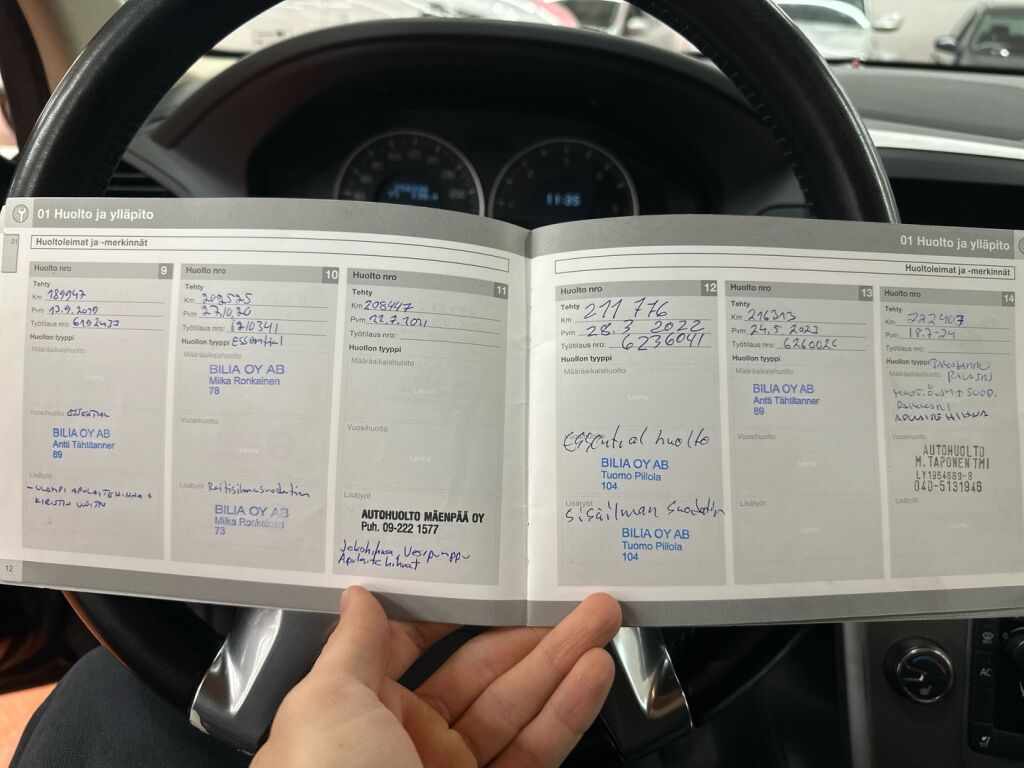 01 Huolto ja ylläpito
01
Huoltoleimat ja -merkinnät
Huolto nro 9
Tehty
Km 189947
Pvm 12.9.2019
Työtilaus nro: 6192437
Huollon tyyppi
Määräaikaishuolto
Leima
Vuosihuolto essential
BILIA OY AB
Antti Tähtitanner
89
Lisätyöt
- ULOMPI APULAITEHIHNA +
KIRISTIN UUSITTU
12
Huolto nro 10
Tehty
Km 202525
Pvm 27.10.20
Työtilaus nro: 6210341
Huollon tyyppi Essential
BILIA OY AB
Miika Ronkainen
78
Vuosihuolto
Leima
Lisätyöt Raitisilmasuodatin
BILIA OY AB
Miika Ronkainen
73
Huolto nro 11
Tehty
Km 208447
Pvm 22.7.2021
Työtilaus nro:
Huollon tyyppi
Määräaikaishuolto
Leima
Vuosihuolto
Leima
Lisätyöt
AUTOHUOLTO MÄENPÄÄ OY
Puh. 09-222 1577
Jakohihna, Vesipumppu
Apulaitehihnat
01 Huolto ja ylläpito
Huoltoleimat ja -merkinnät
Huolto nro 12
Tehty
Km 211 776
Pvm 28.3 2022
Työtilaus nro: 6236041
Huollon tyyppi
Määräaikaishuolto
Leima
Vuosihuolto
Essential huolto
BILIA OY AB
Tuomo Piilola
104
Lisätyöt
Sisäilman Suodatin
BILIA OY AB
Tuomo Piilola
104
Huolto nro 13
Tehty
Km 216313
Pvm 24.5.2023
Työtilaus nro: 6260026
Huollon tyyppi
Määräaikaishuolto
BILIA OY AB
Antti Tähtitanner
89
Vuosihuolto
Leima
Lisätyöt
Huolto nro 14
Tehty
Km 222407
Pvm 18.7-24
Työtilaus nro:
Huollon tyyppi
Määräaikaishuolto
MOOT.ÖLJYT + SUOD.
APULAITEHIHNA
Vuosihuolto
AUTOHUOLTO
M.TAPONEN TMI
LY1954689-8
040-5131946
Lisätyöt
11:35
AC